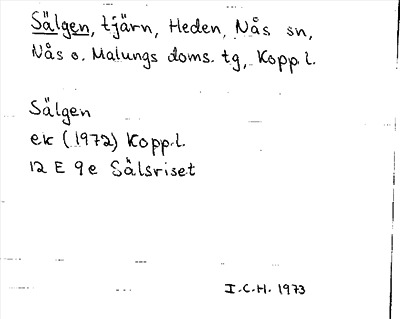 Sälgen, tjärn, Heden, Nås sn,
Nås o. Malungs doms. tg, Kopp.l.
Sälgen
ek (1972) Kopp.l.
12 E 9e Sälsriset
I.C.H. 1973